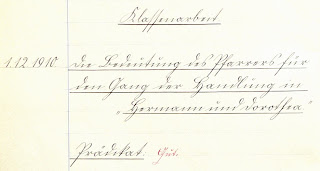 Klassenarbeit
1.12.1910. Die Bedeutung des Pfarrers für
den Gang der Handlung in
„Hermann und Dorothea“
Prädikat: Gut.